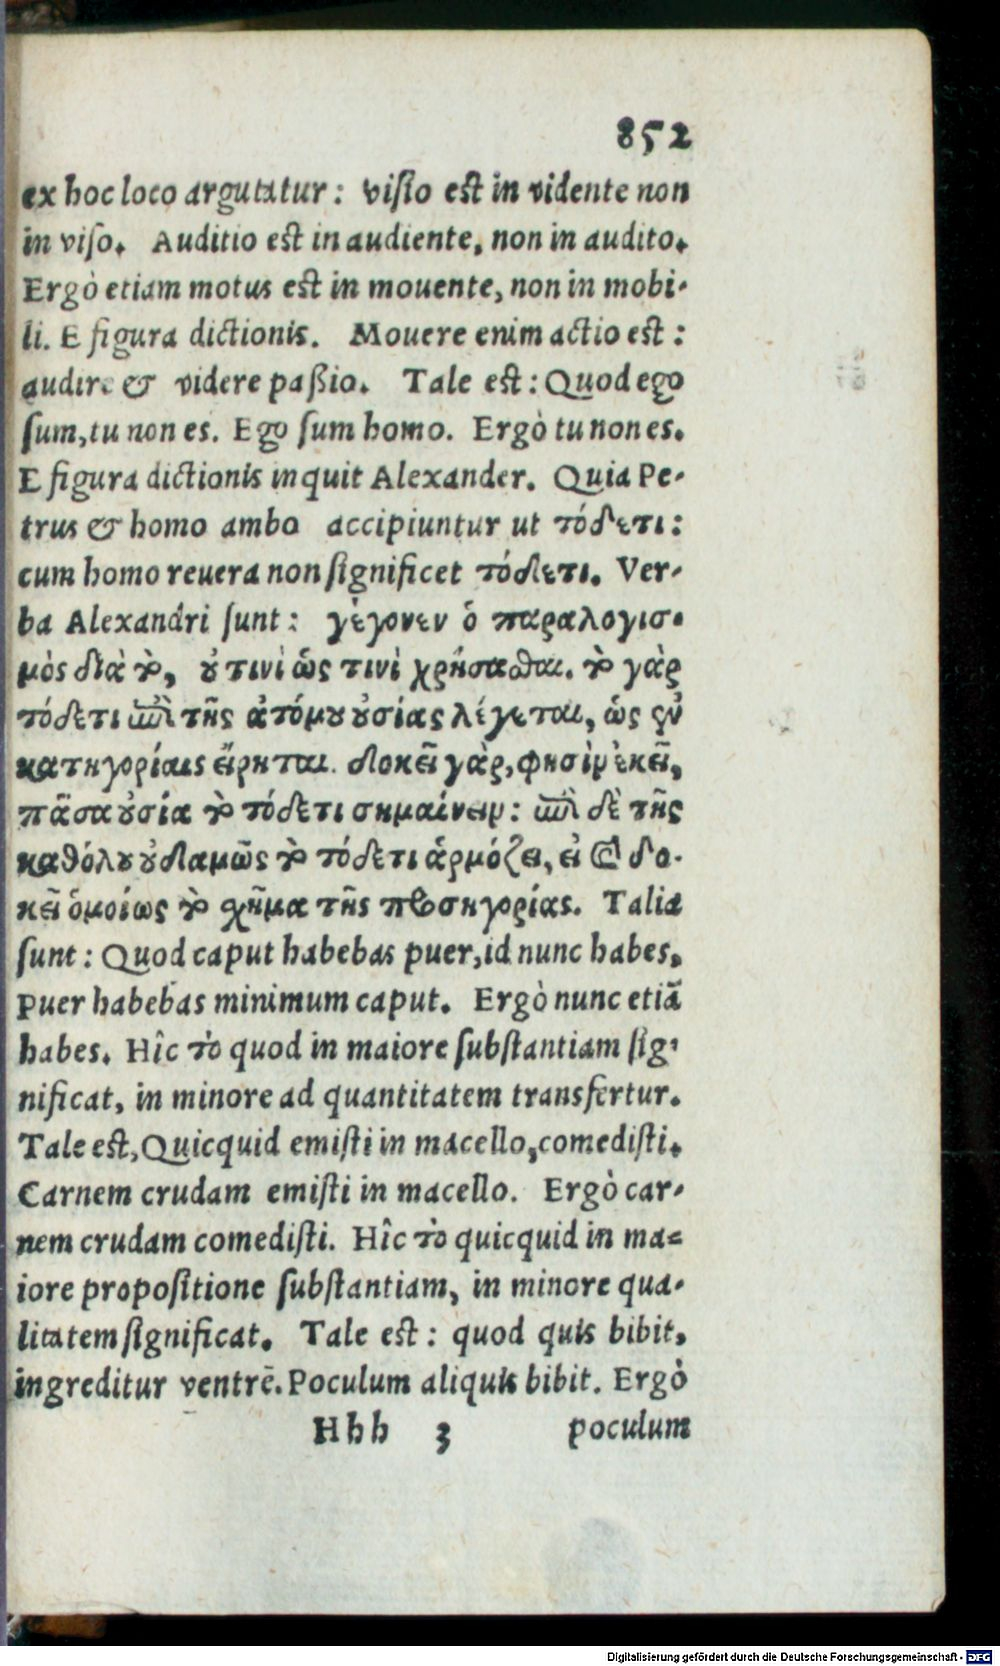 852
ex hoc loco argutatur: visio est in vidente non
in viso. Auditio est in audiente, non in audito.
Ergò etiam motus est in mouente, non in mobi-
li. E figura dictionis. Mouere enim actio est:
audire & videre paßio. Tale est: Quod ego
sum, tu non es. Ego sum homo. Ergò tu non es.
E figura dictionis inquit Alexander. Quia Pe-
trus & homo ambo accipiuntur ut τόδετι:
cum homo reuera non significet τόδετι. Ver-
ba Alexandri sunt: γέγονεν ὁ παραλογισ-
μὸς διὰ τὸ, οὔ τινὶ ὥς τινὶ χρήσασθαι. τὸ γὰρ
τόδετι ἐπὶ τῆς ἀτόμου οὐσίας λέγεται, ὡς ἐν
κατηγορίαις εἴρηται. δοκεῖ γὰρ, φησὶν ἐκεῖ,
πᾶσα οὐσία τὸ τόδετι σημαίνειν: ἐπὶ δὲ τῆς
καθόλου οὐδαμῶς τὸ τόδετι ἁρμόζει, εἰ καὶ δο-
κεῖ ὁμοίως τὸ σχῆμα τῆς προσηγορίας. Talia
sunt: Quod caput habebas puer, id nunc habes.
Puer habebas minimum caput. Ergò nunc etiã
habes. Hîc τὸ quod in maiore substantiam sig-
nificat, in minore ad quantitatem transfertur.
Tale est, Quicquid emisti in macello, comedisti.
Carnem crudam emisti in macello. Ergò car-
nem crudam comedisti. Hîc τὸ quicquid in ma-
iore propositione substantiam, in minore qua-
litatem significat. Tale est: quod quis bibit,
ingreditur ventrē. Poculum aliquis bibit. Ergò
Hhh 3 poculum
Digitalisierung gefördert durch die Deutsche Forschungsgemeinschaft - DFG